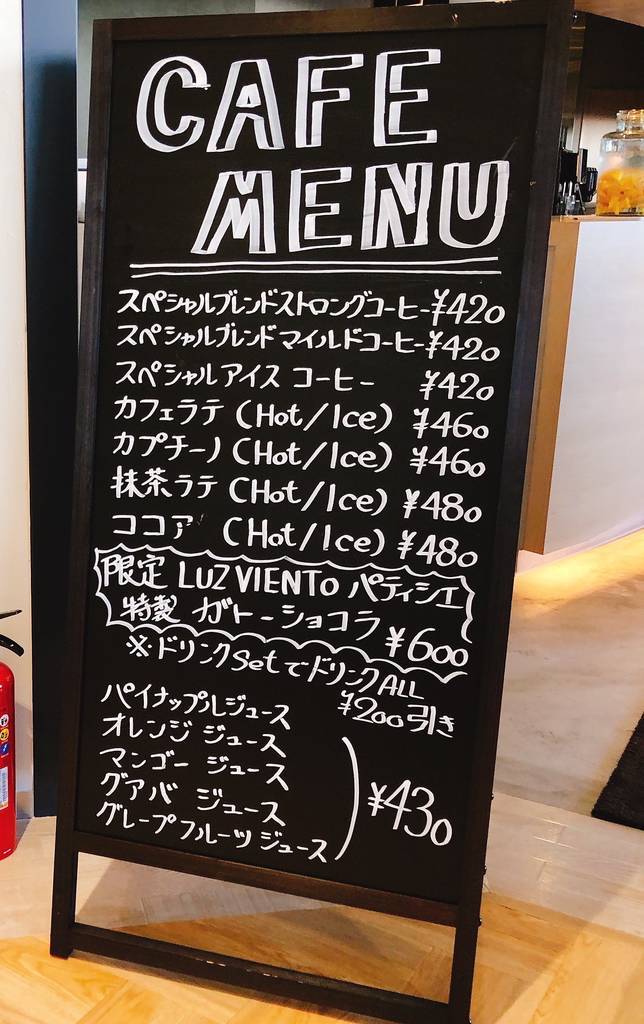 CAFE
MENU
スペシャルブレンドストロングコーヒー¥420
スペシャルブレンドマイルドコーヒー¥420
スペシャルアイスコーヒー ¥420
カフェラテ (Hot/Ice) ¥460
カプチーノ (Hot/Ice) ¥460
抹茶ラテ (Hot/Ice) ¥480
ココア (Hot/Ice) ¥480
限定 LUZ VIENTO パティシエ
特製 ガトーショコラ ¥600
※ドリンクSetでドリンクALL
¥200引き
パイナップルジュース
オレンジジュース
マンゴージュース
グアバジュース
グレープフルーツジュース
¥430